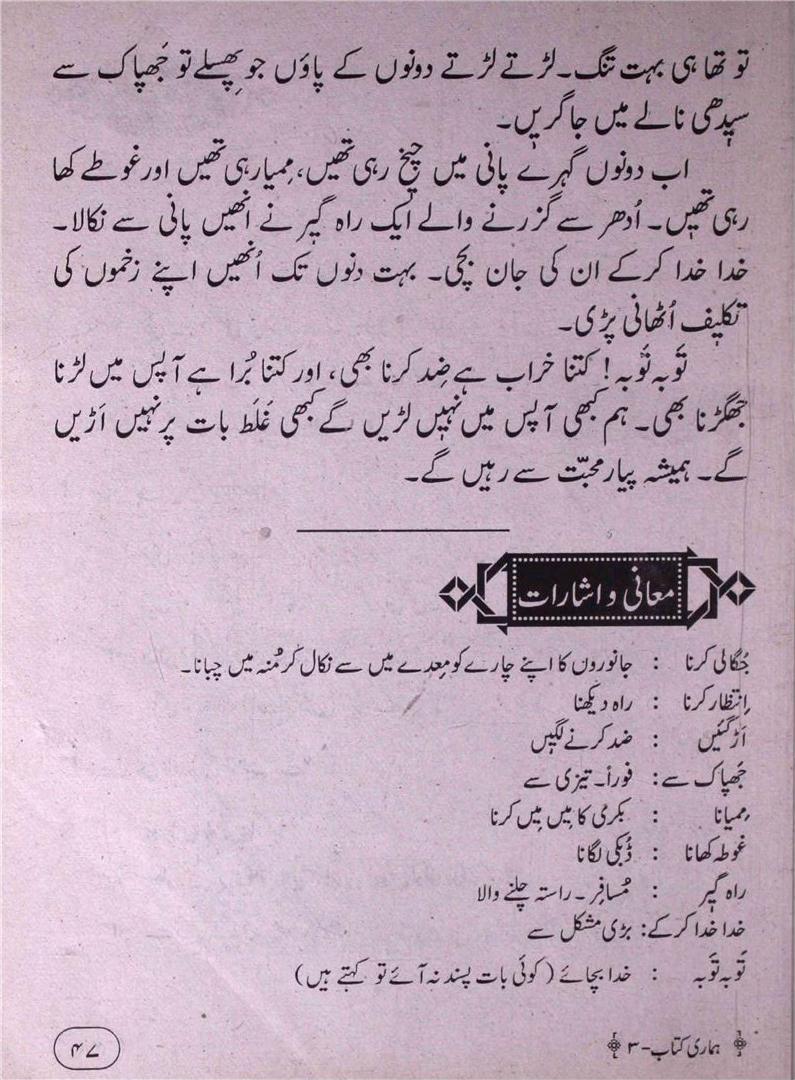 تو تھا ہی بہت تنگ۔ لڑتے لڑتے دونوں کے پاؤں جو پھِسلے تو جَھپاک سے
سیدھی نالے میں جا گریں۔
اب دونوں گہرے پانی میں چیخ رہی تھیں، مِمیا رہی تھیں اور غوطے کھا
رہی تھیں۔ اُدھر سے گزرنے والے ایک راہ گیر نے انھیں پانی سے نکالا۔
خدا خدا کرکے ان کی جان بچی۔ بہت دنوں تک اُنھیں اپنے زخموں کی
تکلیف اُٹھانی پڑی۔
تَوبہ تَوبہ! کتنا خراب ہے ضِد کرنا بھی، اور کتنا بُرا ہے آپس میں لڑنا
جھگڑنا بھی۔ ہم کبھی آپس میں نہیں لڑیں گے کبھی غَلَط بات پر نہیں اَڑیں
گے۔ ہمیشہ پیار محبّت سے رہیں گے۔
معانی و اشارات
جُگالی کرنا : جانوروں کا اپنے چارے کو مِعدے میں سے نکال کر مُنہ میں چبانا۔
اِنتظار کرنا : راہ دیکھنا
اَڑ گئیں : ضد کرنے لگیں
جَھپاک سے : فوراً۔ تیزی سے
مِمیانا : بکری کا میں میں کرنا
غوطہ کھانا : ڈُبکی لگانا
راہ گیر : مُسافِر۔ راستہ چلنے والا
خدا خدا کرکے : بڑی مشکل سے
تَوبہ تَوبہ : خدا بچائے (کوئی بات پسند نہ آئے تو کہتے ہیں)
ہماری کتاب-۳
۴۷